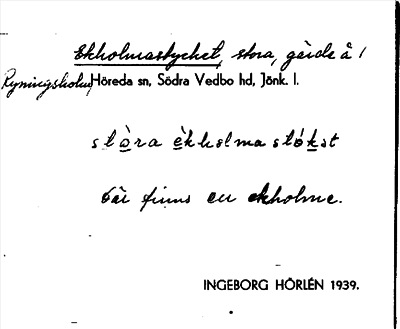 Ekholmastycket, stora, gärde å /
Ryningsholm, Höreda sn, Södra Vedbo hd, Jönk. l.
stòra èkholma stókst
där finns en ekholme.
INGEBORG HÖRLÉN 1939.